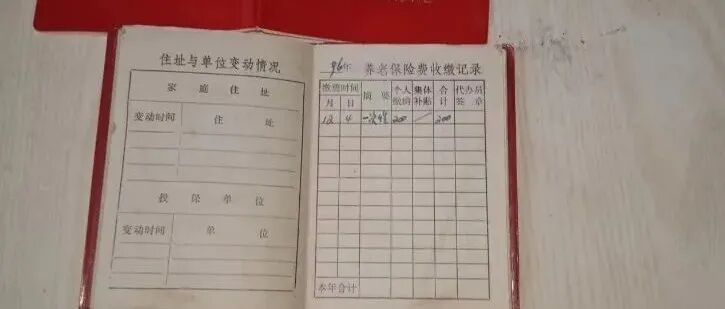 住址与单位变动情况
家庭住址
变动时间 住址
投保单位
变动时间 单位
96年 养老保险费收缴记录
缴费时间 摘要 个人缴纳 集体补贴 合计 代办员签章
月 日
12 4 一次性 200 / 200
本年合计